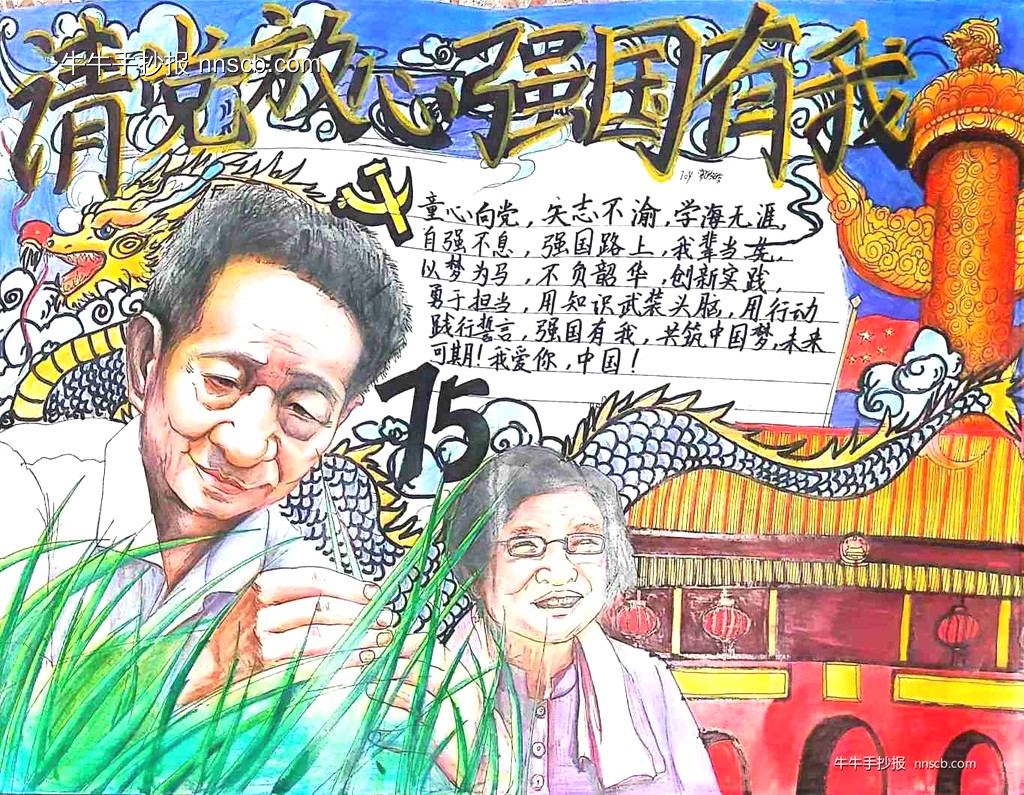 请党放心 强国有我
牛牛手抄报 nnscb.com
童心向党，矢志不渝，学海无涯，
自强不息，强国路上，我辈当先，
以梦为马，不负韶华，创新实践，
勇于担当，用知识武装头脑，用行动
践行誓言，强国有我，共筑中国梦，未来
可期！我爱你，中国！
75
牛牛手抄报 nnscb.com